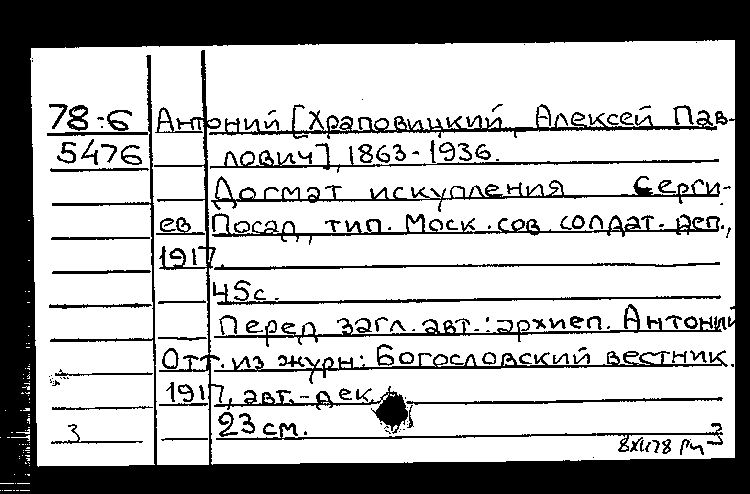 78:6 Антоний [Храповицкий, Алексей Пав-
5476 лович], 1863-1936.
Догмат искупления Серги-
ев Посад, тип. Моск. сов. солдат. деп.,
1917.
45с.
Перед загл. авт.: архиеп. Антоний
Отт. из журн: Богословский вестник.
1917, авг.-дек.
23 см.
3